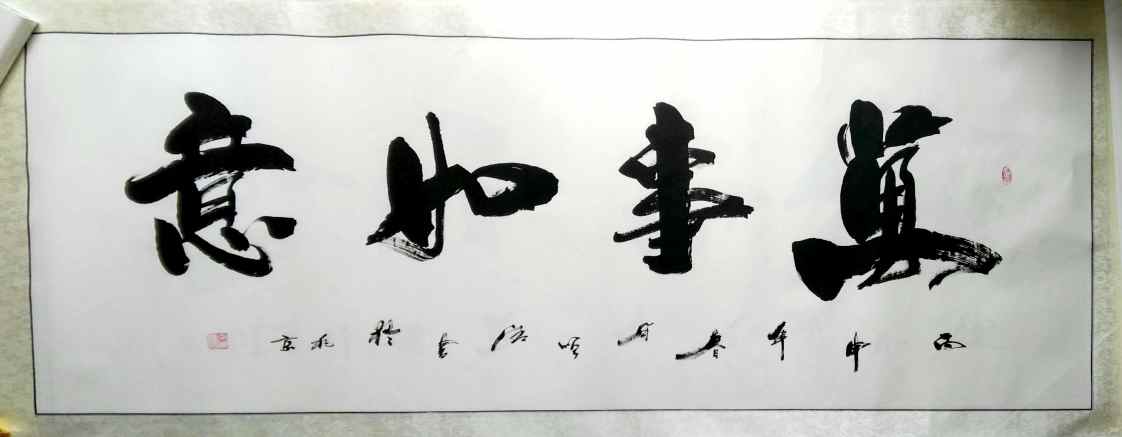 萬事如意
丙申年春月書於北京